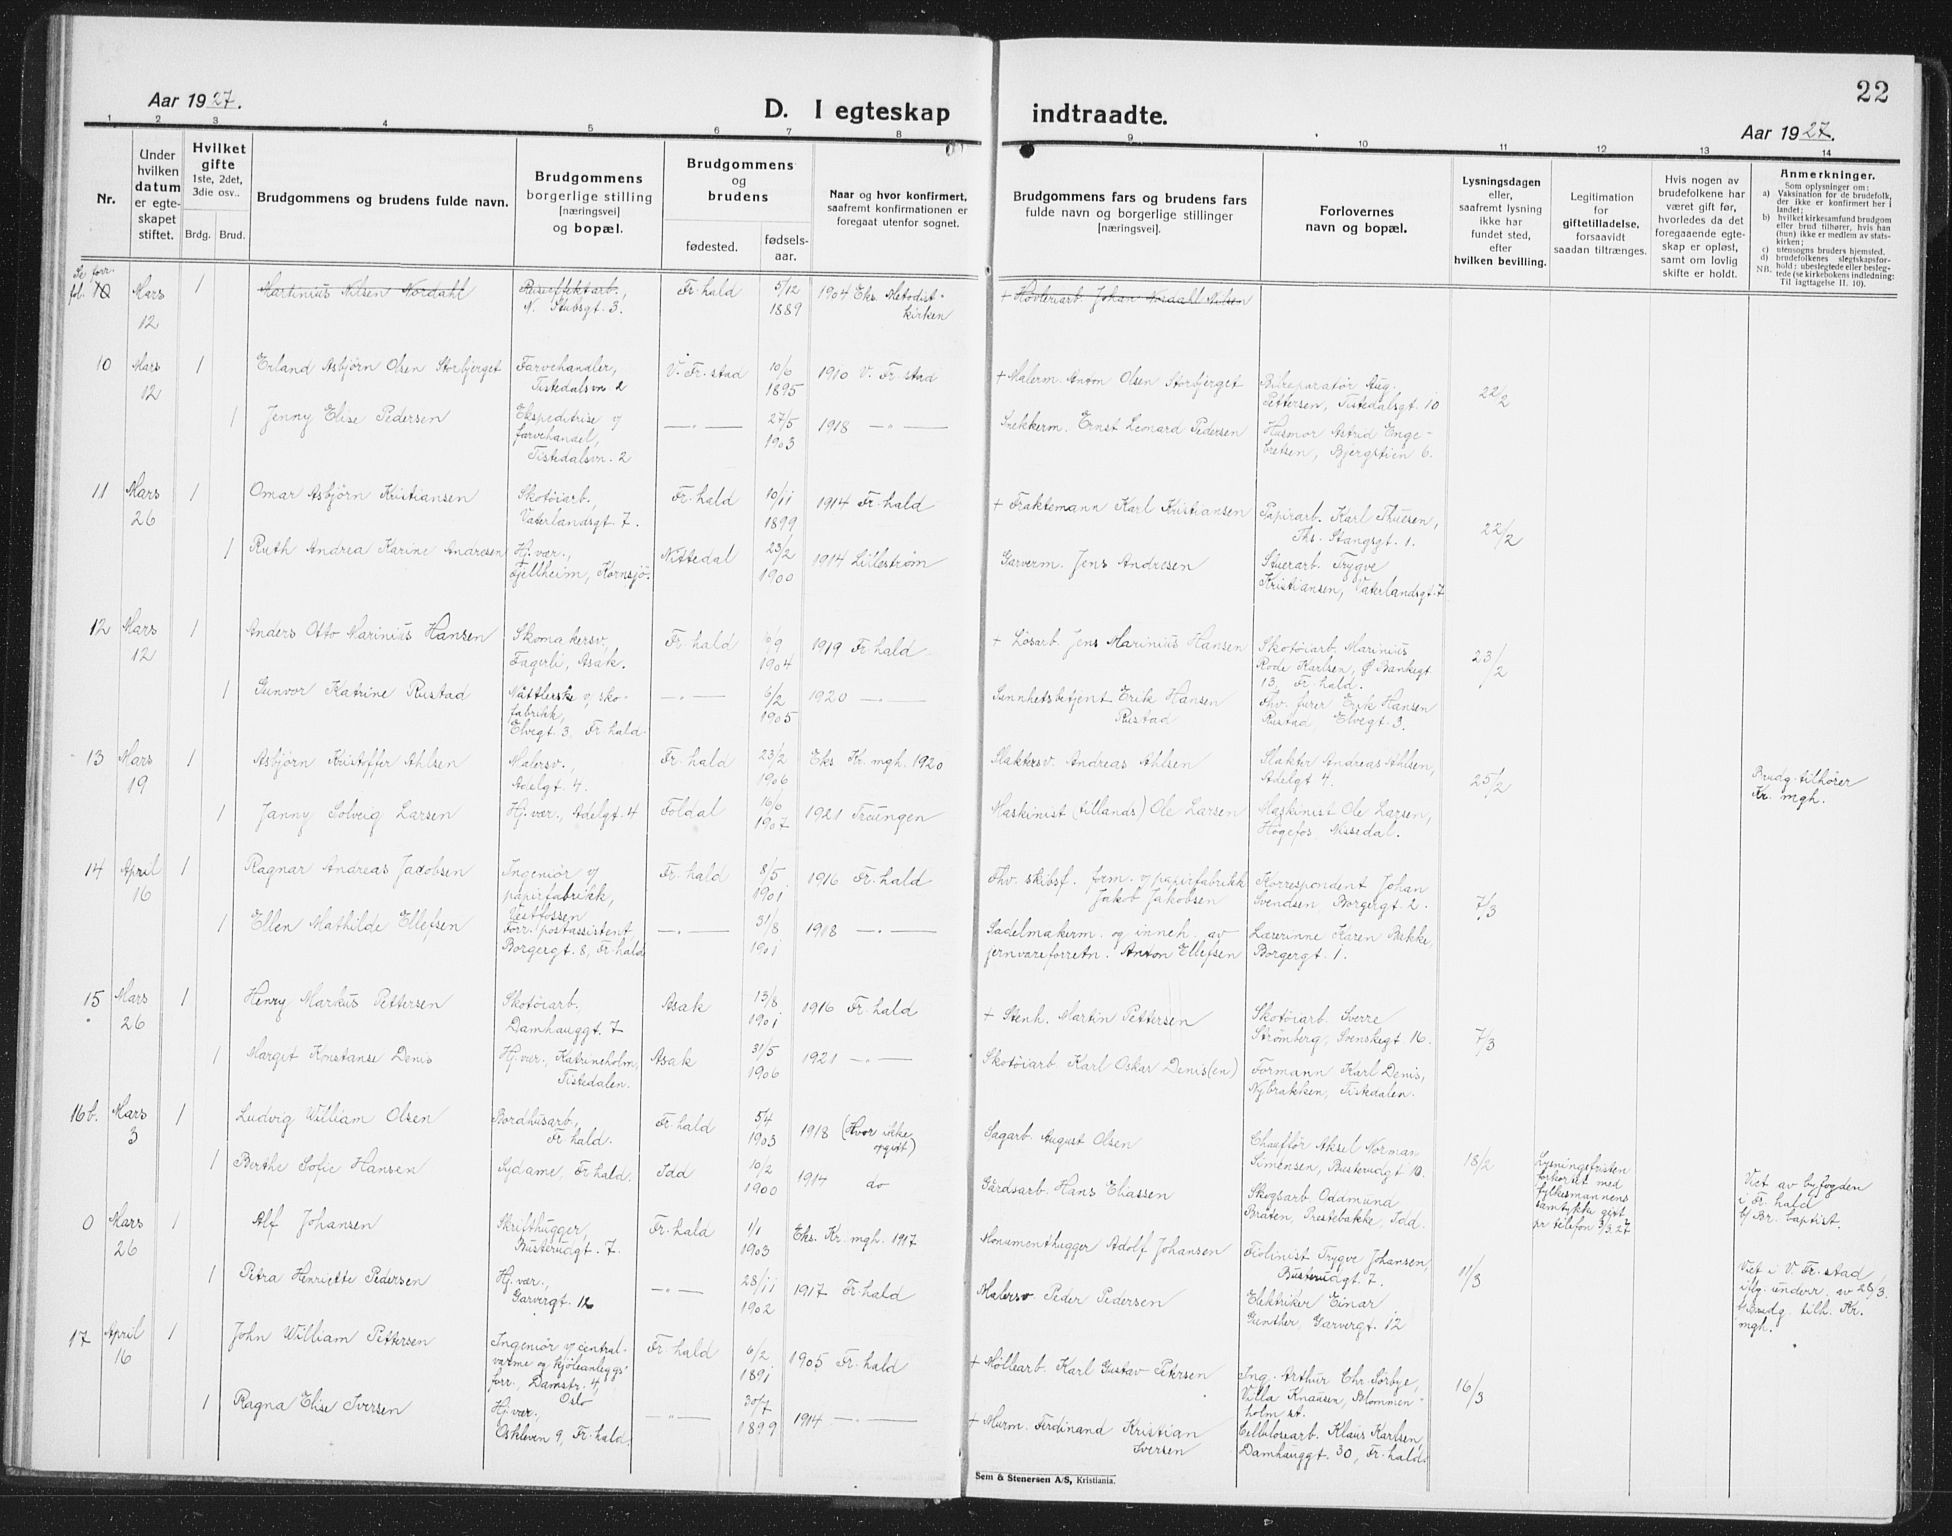 22
Aar 1927.
D. I egteskap indtraadte.
Aar 1927.
1 2 3 4 5 6 7 8 9 10 11 12 13 14
Nr.
Under
hvilken
datum
er egte-
skapet
stiftet.
Hvilket
gifte
1ste, 2det,
3die osv..
Brdg. Brud.
Brudgommens og brudens fulde navn.
Brudgommens
borgerlige stilling
[næringsvei]
og bopæl.
Brudgommens
og
brudens
fødested.
fødsels-
aar.
Naar og hvor konfirmert,
saafremt konfirmationen er
foregaat utenfor sognet.
Brudgommens fars og brudens fars
fulde navn og borgerlige stillinger
[næringsvei].
Forlovernes
navn og bopæl.
Lysningsdagen
eller,
saafremt lysning
ikke har
fundet sted,
efter
hvilken bevilling.
Legitimation
for
giftetilladelse,
forsaavidt
saadan tiltrænges.
Hvis nogen av
brudefolkene har
været gift før,
hvorledes da det
foregaaende egte-
skap er opløst,
samt om lovlig
skifte er holdt.
Anmerkninger.
Som oplysninger om:
a) Vaksination for de brudefolk,
der ikke er konfirmert her i
landet;
b) hvilket kirkesamfund brudgom
eller brud tilhører, hvis han
(hun) ikke er medlem av stats-
kirken;
c) utensogns bruders hjemsted.
d) brudefolkenes slegtskapsfor-
hold; ubeslegtede eller besleg-
tede (se kirkebokens indledning:
NB. Til iagttagelse II. 10).
Se forr.
fol. 10 Mars 12 1 Martinius Nilsen Nordahl
N. Stubsgt. 3.
Fr.hald 5/12 1889 1904 Eks. Metodist-
kirken
+ Høvleriarb. Johan Nordahl Nilsen
10 Mars 12 1 Erland Asbjørn Olsen Storbjerget
Farvehandler,
Tistedalsvn. 2
V. Fr.stad 10/6 1895 1910 V. Fr.stad
+ Malerm. Anton Olsen Storbjerget
Bilreparatør Aug.
Pettersen, Tistedalsgt. 10
22/2
1 Jenny Elise Pedersen
Ekspeditrise v/
farvehandel,
Tistedalsvn. 2
—"— 27/5 1903 1918 —"—
Snekkerm. Ernst Leonard Pedersen
Husmor Astrid Enge-
bretsen, Bjergstien 6.
11 Mars 26 1 Omar Asbjørn Kristiansen
Skotøiarb.
Vaterlandsgt. 7.
Fr.hald 10/11 1899 1914 Fr.hald
+ Fraktemann Karl Kristiansen
Papirarb. Karl Thuesen,
Ths. Stangsgt. 1.
22/2
1 Ruth Andrea Karine Andresen
Hj.vær.,
Fjellheim, Kornsjø.
Nittedal 23/2 1900 1914 Lillestrøm
Garverm. Jens Andresen
Stuerarb. Trygve
Kristiansen, Vaterlandsgt. 7
12 Mars 12 1 Anders Otto Marinius Hansen
Skomakersv.,
Fagerli, Asak.
Fr.hald 10/9 1904 1919 Fr.hald
+ Løsarb. Jens Marinius Hansen
Skotøiarb. Marinius
Rode Karlsen, Ø Bankegt
13, Fr.hald.
23/2
1 Gunvor Katrine Rustad
Nåttlerske v/ sko-
fabrikk,
Elvegt. 3, Fr.hald.
—"— 6/2 1905 1920 —"—
Sunnhetsbetjent Erik Hansen
Rustad
Fhv. furer Erik Hansen
Rustad, Elvegt. 3.
13 Mars 19 1 Asbjørn Kristoffer Ahlsen
Malersv.,
Adelgt. 4.
Fr.hald 23/2 1906 Eks Kr. mgh. 1920
Slaktersv. Andreas Ahlsen
Slakter Andreas Ahlsen,
Adelgt 4.
25/2
Brudg. tilhører
Kr. mgh.
1 Janny Solveig Larsen
Hj. vær., Adelgt. 4
Foldal 16/6 1907 1921 Treungen
Maskinist (tillands) Ole Larsen
Maskinist Ole Larsen,
Høgefos, Nissedal.
14 April 16 1 Ragnar Andreas Jacobsen
Ingeniør v/
papirfabrikk,
Vestfossen
Fr.hald 8/5 1901 1916 Fr.hald
Fhv. skibsf. form. v/ papirfabrikk
Jakob Jakobsen
Korrespondent Johan
Svendsen, Borgergt. 2.
7/3
1 Ellen Mathilde Ellefsen
Forr. postassistent,
Borgergt. 8, Fr.hald
—"— 31/8 1901 1918 —"—
Sadelmakerm. og inneh. av
jernvareforretn. Anton Ellefsen
Lærerinne Karen Bakke,
Borgergt. 1.
15 Mars 26 1 Henry Markus Pettersen
Skotøiarb.
Damhauggt. 7
Asak 13/8 1901 1916 Fr.hald
+ Stenh. Martin Pettersen
Skotøiarb. Sverre
Strømberg, Svenskegt 16.
7/3
1 Margit Konstanse Denis
Hj.vær., Katrineholm,
Tistedalen.
Asak 31/5 1906 1921 —"—
Skotøiarb. Karl Oskar Denis(en)
Formann Karl Denis,
Nybrakken, Tistedalen.
16b. Mars 3 1 Ludvig William Olsen
Bordhusarb.,
Fr.hald.
Fr.hald 5/4 1903 1918 (Hvor ikke
opgitt)
Sagarb. August Olsen
Chauffør Aksel Norman
Simensen, Busterudgt 10.
18/2
Lysningsfristen
forkortet med
fylkesmannens
samtykke gitt
pr telefon 3/3.27
Viet av byfogden
i Fr.hald
b/ Br. baptist.
1 Berthe Sofie Hansen
Sydame, Fr.hald.
Idd 10/2 1900 1914 do
Gårdsarb. Hans Eliassen
Skogsarb. Oddmund
Bråten, Prestebakke, Idd.
0 Mars 26 1 Alf Johansen
Skrifthugger,
Busterudgt. 7.
Fr.hald 1/1 1903 Eks. Kr. mgh. 1917
Monumenthugger Adolf Johansen
Fiolinist Trygve Johansen,
Busterudgt. 7.
11/3
Viet i V. Fr.stad
iflg. underr. av 28/3.
Brudg. tilh. Kr.
mgh.
1 Petra Henriette Pedersen
Hj.vær.,
Garvergt. 12
—"— 28/11 1902 1917 Fr.hald
Malersv Peder Pedersen
Elektriker Einar
Günther, Garvergt. 12
17 April 16 1 John William Pettersen
Ingeniør v/ central-
varme og kjøleanleggs-
forr., Damstr. 4,
Oslo
Fr.hald 6/2 1891 1905 Fr.hald
+ Møllearb. Karl Gustav Petersen
Ing. Arthur Chr. Sørbye,
Villa Knausen, Blommen-
holm st.
16/3
1 Ragna Elise Iversen
Hj.vær.,
Oskleven 9, Fr.hald.
—"— 30/7 1899 1914 —"—
+ Murm. Ferdinand Kristian
Iversen
Cellulosearb. Klaus Karlsen,
Damhauggt. 30, Fr.hald.
Sem & Stenersen A/S, Kristiania.